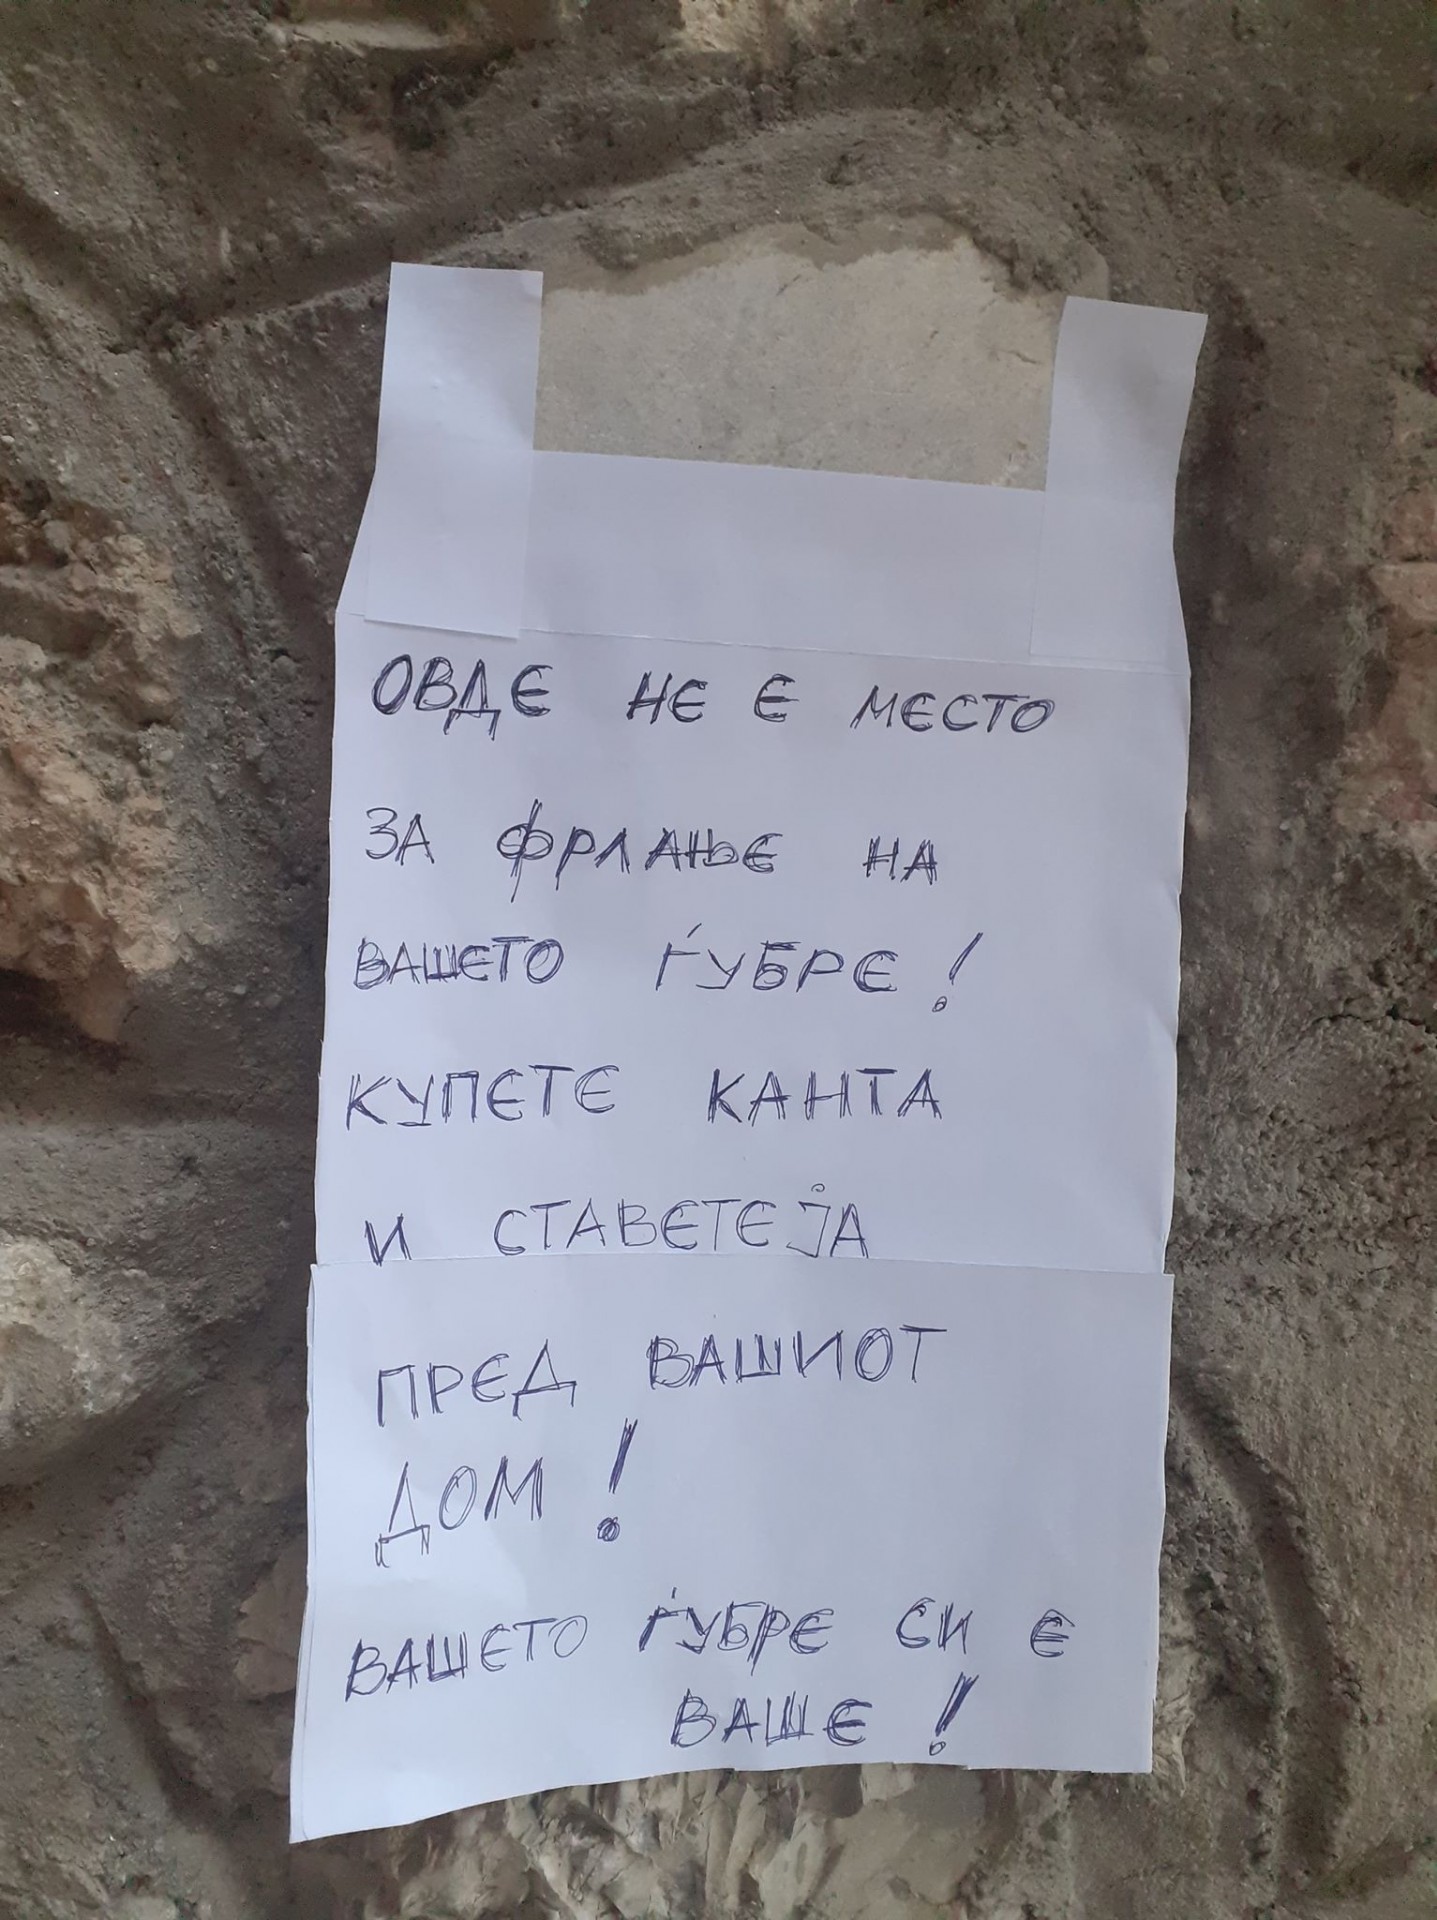 ОВДЕ НЕ Е МЕСТО
ЗА ФРЛАЊЕ НА
ВАШЕТО ЃУБРЕ!
КУПЕТЕ КАНТА
И СТАВЕТЕ ЈА
ПРЕД ВАШИОТ
ДОМ!
ВАШЕТО ЃУБРЕ СИ Е
ВАШЕ!